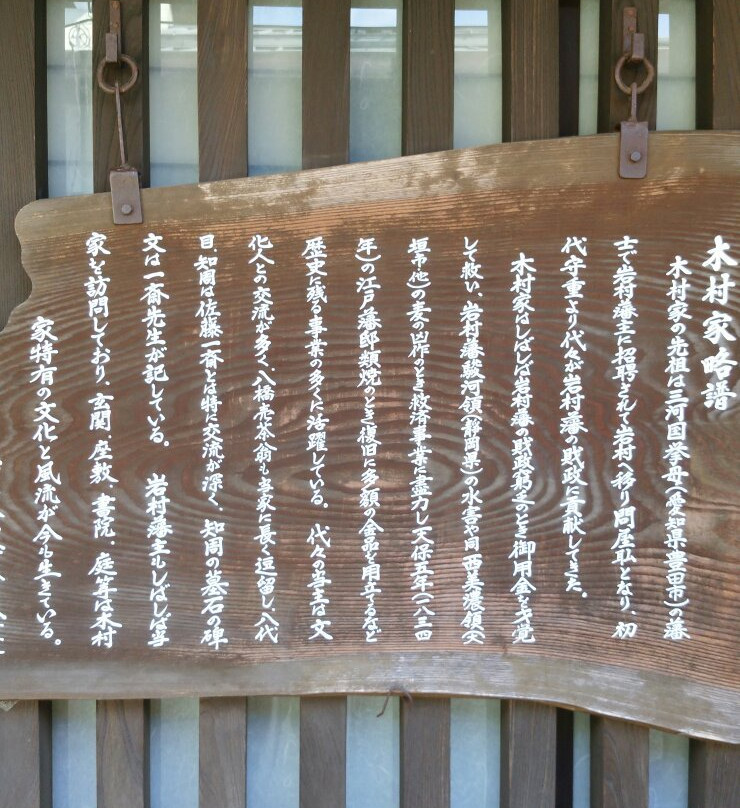 木村家略譜
木村家の先祖は三河国挙母(愛知県豊田市)の藩
士で岩村藩主に招聘されて岩村へ移り問屋職となり、初
代守重より代々が岩村藩の財政に貢献してきた。
木村家はしばしば岩村藩の財政窮乏のとき御用金を才覚
して救い、岩村藩駿河領(静岡県)の水害や同西美濃領(大
垣市他)の麦の凶作のとき救済事業に盡力し天保五年(一八三四
年)の江戸藩邸類焼のとき復旧に多額の金品を用立てるなど
歴史に残る事業の多くに活躍している。代々の当主は文
化人との交流が多く、八橋売茶翁も当家に長く逗留し、八代
目知周は佐藤一斎とは特に交流が深く、知周の墓石の碑
文は一斎先生が記している。岩村藩主もしばしば当
家を訪問しており、玄関、座敷、書院、庭等は木村
家特有の文化と風流が今も生きている。